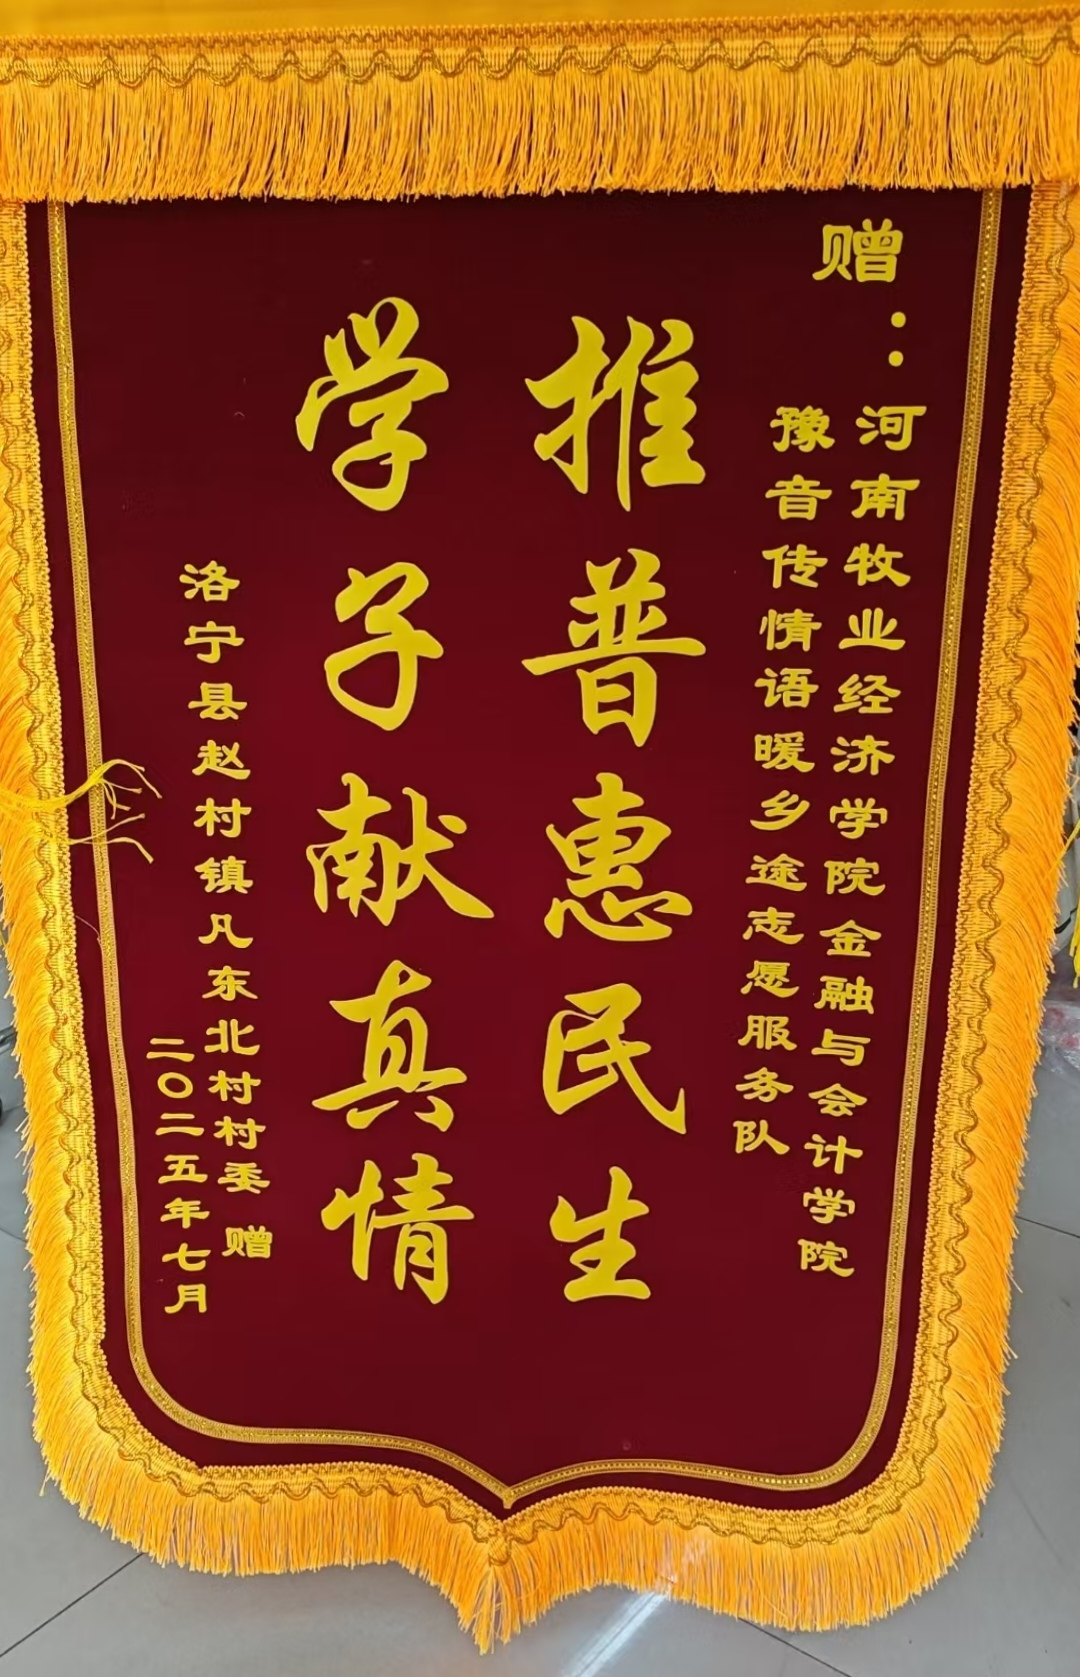 赠：
河南牧业经济学院金融与会计学院
豫音传情语暖乡途志愿服务队
推普惠民生
学子献真情
洛宁县赵村镇凡东北村村委 赠
二〇二五年七月